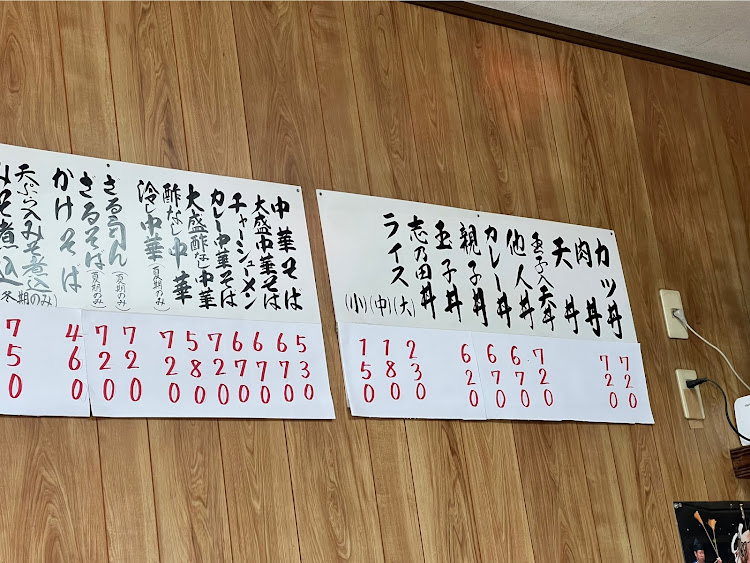 カツ丼 720
肉丼 720
天丼
玉子入天丼 720
他人丼 670
カレー丼 670
親子丼 620
玉子丼
志乃田丼
ライス
(大) 230
(中) 180
(小) 150
中華そば 530
大盛中華そば 670
チャーシューメン 670
カレー中華そば 670
大盛酢なし中華 720
酢なし中華 580
冷し中華(夏期のみ) 720
ざるうどん(夏期のみ) 720
ざるそば(夏期のみ) 720
かけそば 460
天ぷら入みそ煮込
みそ煮込(冬期のみ) 750